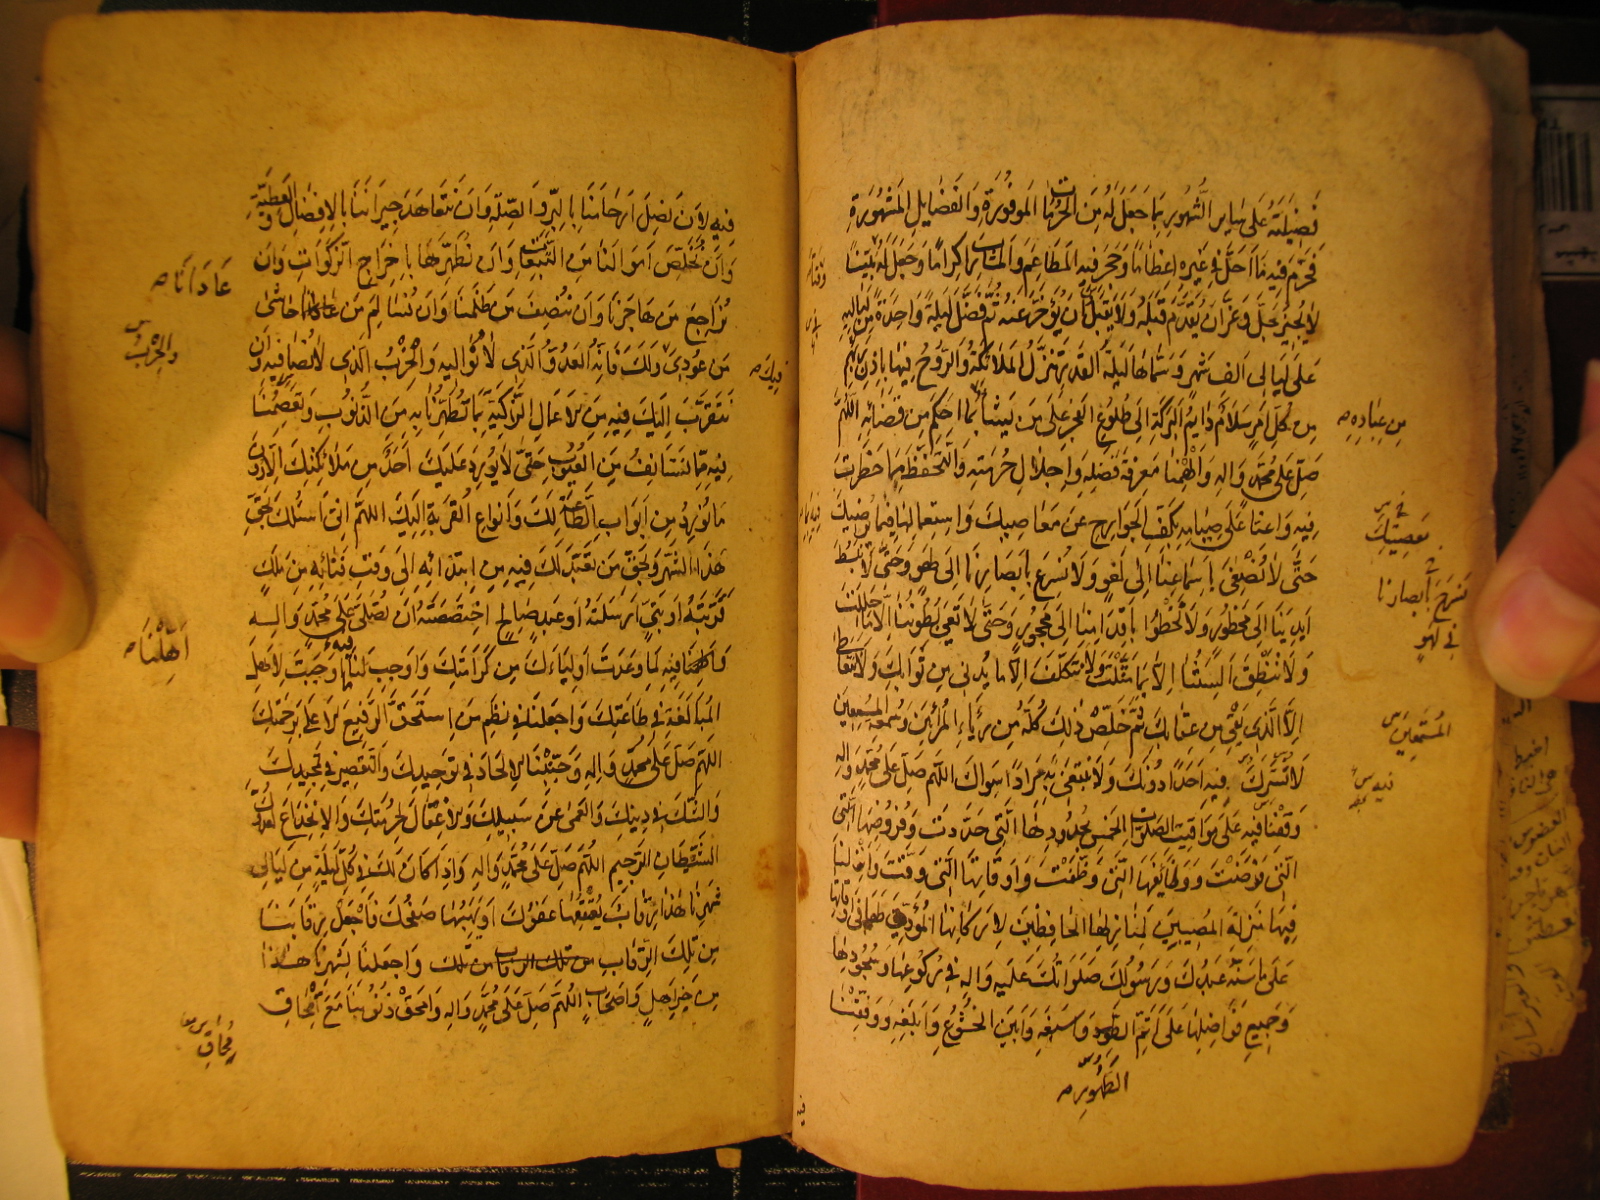 فَضِيلَتَهُ عَلَى سَايِرِ الشُّهُورِ بِمَا جَعَلَ لَهُ مِنَ الْحُرُمَاتِ الْمَوْفُورَةِ وَالْفَضَايِلِ الْمَشْهُورَةِ
فَحَرَّمَ فِيهِ مَا اَحَلَّ فِي غَيْرِهِ اِعْظَامًا وَحَجَرَ فِيهِ الْمَطَاعِمَ وَالْمَشَارِبَ اِكْرَامًا وَجَعَلَ لَهُ
لَا يُجِيزُ جَلَّ وَعَزَّ اَنْ يُقَدَّمَ قَبْلَهُ وَلَا يَقْبَلُ اَنْ يُؤَخَّرَ عَنْهُ ثُمَّ فَضَّلَ لَيْلَةً وَاحِدَةً مِنْ لَيَالِيهِ
عَلَى لَيَالِي اَلْفِ شَهْرٍ وَسَمَّاهَا لَيْلَةَ الْقَدْرِ تَنَزَّلُ الْمَلَائِكَةُ وَالرُّوحُ فِيهَا بِاِذْنِ رَبِّهِمْ
مِنْ كُلِّ اَمْرٍ سَلَامٌ دَايِمُ الْبَرَكَةِ اِلَى طُلُوعِ الْفَجْرِ عَلَى مَنْ يَشَاءُ بِمَا اَحْكَمَ مِنْ قَضَائِهِ اَللّٰهُمَّ
مِنْ عِبَادِهِ
صَلِّ عَلَى مُحَمَّدٍ وَالِهِ وَاَلْهِمْنَا مَعْرِفَةَ فَضْلِهِ وَاِجْلَالَ حُرْمَتِهِ وَالتَّحَفُّظَ مِمَّا حَظَرْتَ
فِيهِ وَاَعِنَّا عَلَى صِيَامِهِ بِكَفِّ الْجَوَارِحِ عَنْ مَعَاصِيكَ وَاسْتِعْمَالِهَا فِيمَا يُرْضِيكَ
مَعْصِيَتِكَ
حَتَّى لَا نُصْغِيَ بِاَسْمَاعِنَا اِلَى لَغْوٍ وَلَا نُسْرِعَ بِاَبْصَارِنَا اِلَى لَهْوٍ وَحَتَّى لَا نَبْسُطَ
نَسْرَحَ اَبْصَارَنَا
فِي لَهْوٍ
اَيْدِيَنَا اِلَى مَحْظُورٍ وَلَا نَخْطُوَا بِاَقْدَامِنَا اِلَى مَحْجُورٍ وَحَتَّى لَا تَعِيَ بُطُونُنَا اِلَّا مَا اَحْلَلْتَ
وَلَا تَنْطِقَ اَلْسِنَتُنَا اِلَّا بِمَا مَثَّلْتَ وَلَا نَتَكَلَّفَ اِلَّا مَا يُدْنِي مِنْ ثَوَابِكَ وَلَا نَتَعَاطَى
اِلَّا الَّذِي يَقِي مِنْ عِقَابِكَ ثُمَّ خَلِّصْ ذٰلِكَ كُلَّهُ مِنْ رِيَاءِ الْمُرَائِينَ وَسُمْعَةِ الْمُسْمِعِينَ
الْمُسْتَمِعِينَ
لَا نُشْرِكُ فِيهِ اَحَدًا دُونَكَ وَلَا نَبْتَغِي بِهِ مُرَادًا سِوَاكَ اَللّٰهُمَّ صَلِّ عَلَى مُحَمَّدٍ وَالِهِ
وَقِفْنَا فِيهِ عَلَى مَوَاقِيتِ الصَّلَوَاتِ الْخَمْسِ بِحُدُودِهَا الَّتِي حَدَّدْتَ وَفُرُوضِهَا الَّتِي
الَّتِي فَرَضْتَ وَوَظَايِفِهَا الَّتِي وَظَّفْتَ وَاَوْقَاتِهَا الَّتِي وَقَّتَّ وَاَنْزِلْنَا
فِيهَا مَنْزِلَةَ الْمُصِيبِينَ لِمَنَازِلِهَا الْحَافِظِينَ لِاَرْكَانِهَا الْمُؤَدِّينَ لَهَا فِي اَوْقَاتِهَا
عَلَى مَا سَنَّهُ عَبْدُكَ وَرَسُولُكَ صَلَوَاتُكَ عَلَيْهِ وَالِهِ فِي رُكُوعِهَا وَسُجُودِهَا
وَجَمِيعِ فَوَاضِلِهَا عَلَى اَتَمِّ الطَّهُورِ وَاَسْبَغِهِ وَاَبْيَنِ الْخُشُوعِ وَاَبْلَغِهِ وَوَفِّقْنَا
الطَّهُورِ
فِيهِ لِاَنْ نَصِلَ اَرْحَامَنَا بِالْبِرِّ وَالصِّلَةِ وَاَنْ نَتَعَاهَدَ جِيرَانَنَا بِالْاِفْضَالِ وَالْعَطِيَّةِ
وَاَنْ نُخَلِّصَ اَمْوَالَنَا مِنَ التَّبِعَاتِ وَاَنْ نُطَهِّرَهَا بِاِخْرَاجِ الزَّكَوَاتِ وَاَنْ
عَادَانَا
نُرَاجِعَ مَنْ هَاجَرَنَا وَاَنْ نُنْصِفَ مَنْ ظَلَمَنَا وَاَنْ نُسَالِمَ مَنْ عَادَانَا حَاشَى
وَالْحِزْبُ
مَنْ عُودِيَ فِيكَ وَلَكَ فَاِنَّهُ الْعَدُوُّ الَّذِي لَا نُوَالِيهِ وَالْحِزْبُ الَّذِي لَا نُصَافِيهِ وَاَنْ
نَتَقَرَّبَ اِلَيْكَ فِيهِ مِنَ الْاَعْمَالِ الزَّاكِيَةِ بِمَا تُطَهِّرُنَا بِهِ مِنَ الذُّنُوبِ وَتَعْصِمُنَا
فِيهِ مِمَّا نَسْتَانِفُ مِنَ الْعُيُوبِ حَتَّى لَا يُورِدَ عَلَيْكَ اَحَدٌ مِنْ مَلَائِكَتِكَ اِلَّا دُونَ
مَا نُورِدُ مِنْ اَبْوَابِ الطَّاعَةِ لَكَ وَاَنْوَاعِ الْقُرْبَةِ اِلَيْكَ اَللّٰهُمَّ اِنِّي اَسْئَلُكَ بِحَقِّ
هٰذَا الشَّهْرِ وَبِحَقِّ مَنْ تَعَبَّدَ لَكَ فِيهِ مِنِ ابْتِدَائِهِ اِلَى وَقْتِ فَنَائِهِ مِنْ مَلَكٍ
قَرَّبْتَهُ اَوْ نَبِيٍّ اَرْسَلْتَهُ اَوْ عَبْدٍ صَالِحٍ اخْتَصَصْتَهُ اَنْ تُصَلِّيَ عَلَى مُحَمَّدٍ وَالِهِ
اَهِّلْنَا
فِيهِ لِمَا وَعَدْتَ اَوْلِيَاءَكَ مِنْ كَرَامَتِكَ وَاَوْجِبْ لَنَا فِيهِ مَا اَوْجَبْتَ لِاَهْلِ
الْمُبَالَغَةِ فِي طَاعَتِكَ وَاجْعَلْنَا فِي نَظْمِ مَنِ اسْتَحَقَّ الرَّفِيعَ الْاَعْلَى بِرَحْمَتِكَ
اَللّٰهُمَّ صَلِّ عَلَى مُحَمَّدٍ وَالِهِ وَجَنِّبْنَا الْاِلْحَادَ فِي تَوْحِيدِكَ وَالتَّقْصِيرَ فِي تَمْجِيدِكَ
وَالشَّكَّ فِي دِينِكَ وَالْعَمٰى عَنْ سَبِيلِكَ وَالْاِغْفَالَ لِحُرْمَتِكَ وَالْاِنْخِدَاعَ لِعَدُوِّكَ
الشَّيْطَانِ الرَّجِيمِ اَللّٰهُمَّ صَلِّ عَلَى مُحَمَّدٍ وَالِهِ وَاِذَا كَانَ لَكَ فِي كُلِّ لَيْلَةٍ مِنْ لَيَالِي
شَهْرِنَا هٰذَا رِقَابٌ يُعْتِقُهَا عَفْوُكَ اَوْ يَهَبُهَا صَفْحُكَ فَاجْعَلْ رِقَابَنَا
مِنْ تِلْكَ الرِّقَابِ من تلك الرقاب من تلك وَاجْعَلْنَا لِشَهْرِنَا هٰذَا
مِنْ خَيْرِ اَهْلٍ وَاَصْحَابٍ اَللّٰهُمَّ صَلِّ عَلَى مُحَمَّدٍ وَالِهِ وَامْحَقْ ذُنُوبَنَا مَعَ اِمِّحَاقِ
مُحَاقِ